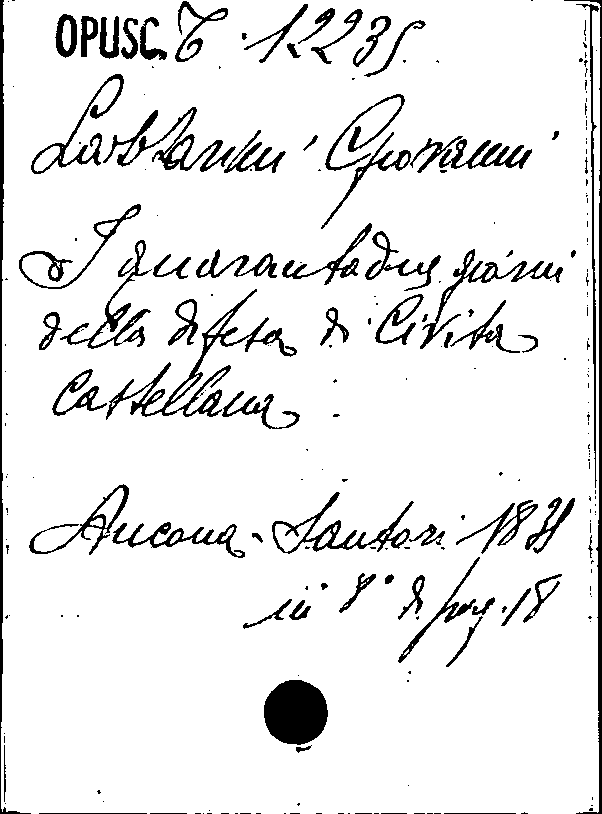 OPUSC. T. 12235
Giovanni
I quarantadue giorni
della difesa di Civita
Castellana
Ancona - Santori 1831
in 8° di pag. 18